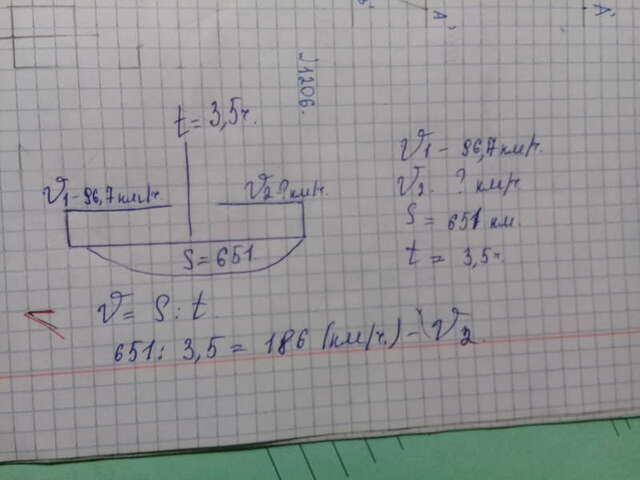 V₁ - 96,7 км/ч.
V₂ . ? км/ч.
S = 651 км.
t = 3,5ч.
t = 3,5ч.
V₁ - 96,7 км/ч.
V₂ ? км/ч.
S = 651
1
V = S : t.
651 : 3,5 = 186 (км/ч.) - V₂